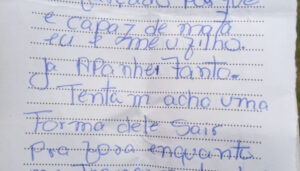 porque
e capaz de mata
eu e meu filho.
ja APanhei tanto.
Tenta m acho uma
Forma dele Sair
pra fora enquanto